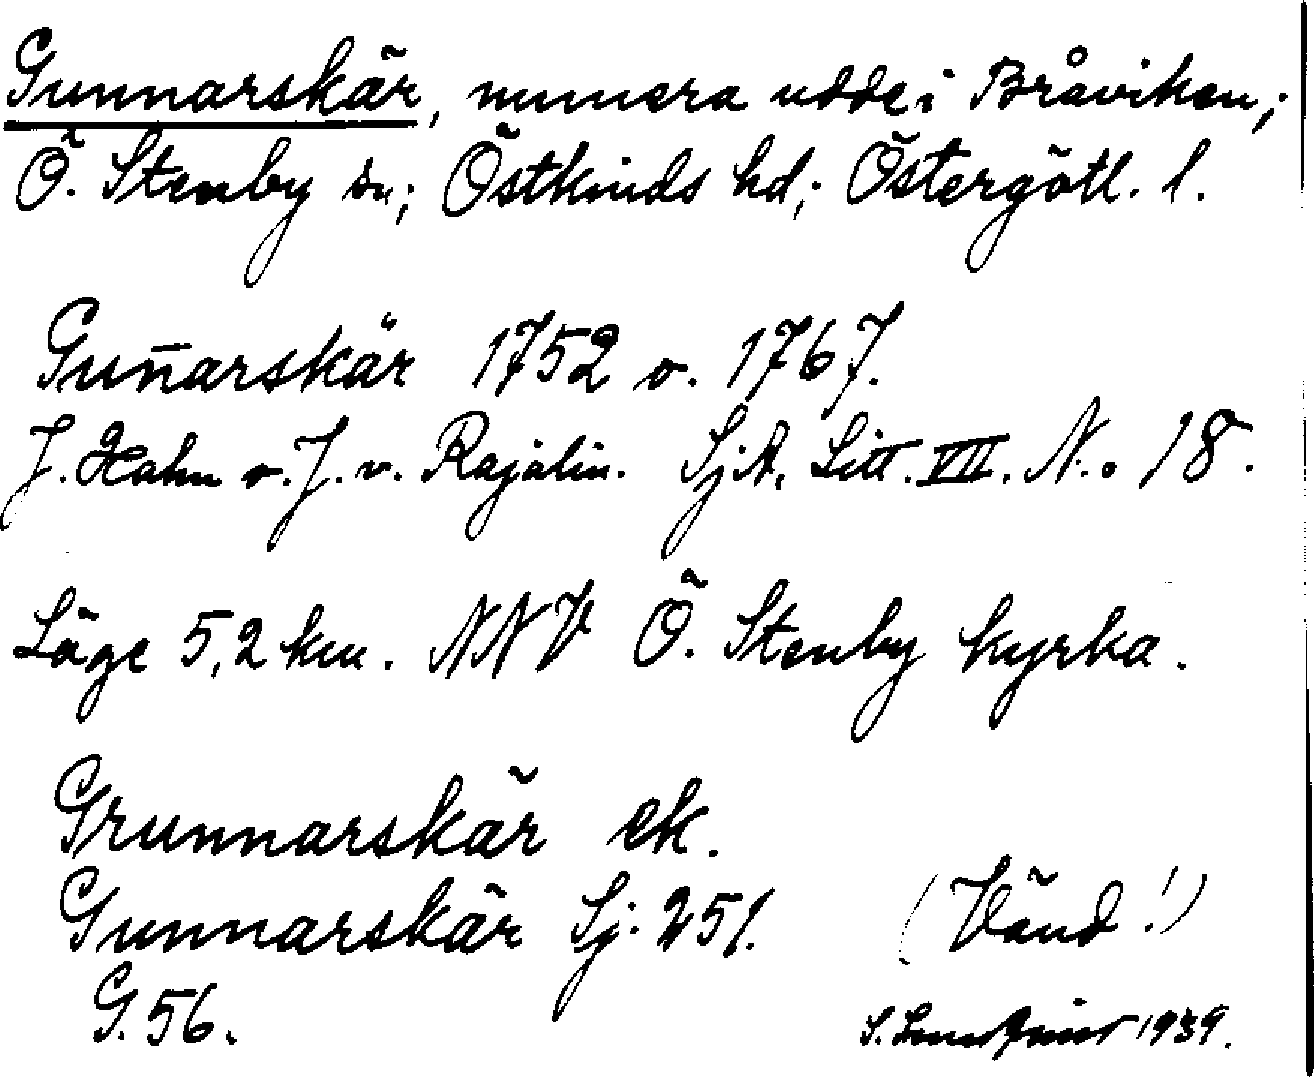 Gunnarskär, numera udde i Bråviken;
Ö. Stenby sn; Östkinds hd; Östergötl. l.
Gun̄arskär 1752 o. 1767.
J. Hahn o. J. v. Rajalin. SjA, Litt. VII. N.o 18.
Läge 5,2 km. NNV Ö. Stenby kyrka.
Grunnarskär ek.
Gunnarskär Sj. 251. (Vänd!)
G. 56.
S. Lundqvist 1939.